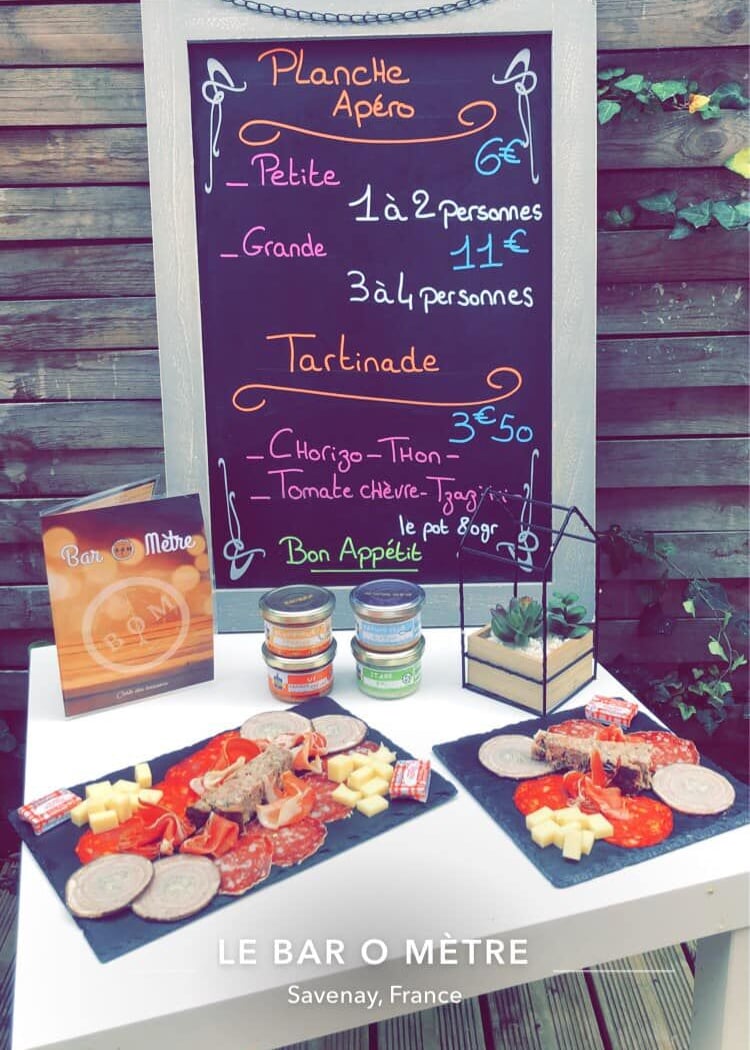 Planche
Apéro
_ Petite 6€
1 à 2 personnes
_ Grande 11€
3 à 4 personnes
Tartinade
3€50
_ Chorizo _ Thon _
_ Tomate chèvre - Tzaziki
le pot 80gr
Bon Appétit
Bar Mètre
BOM
LE BAR O MÈTRE
Savenay, France